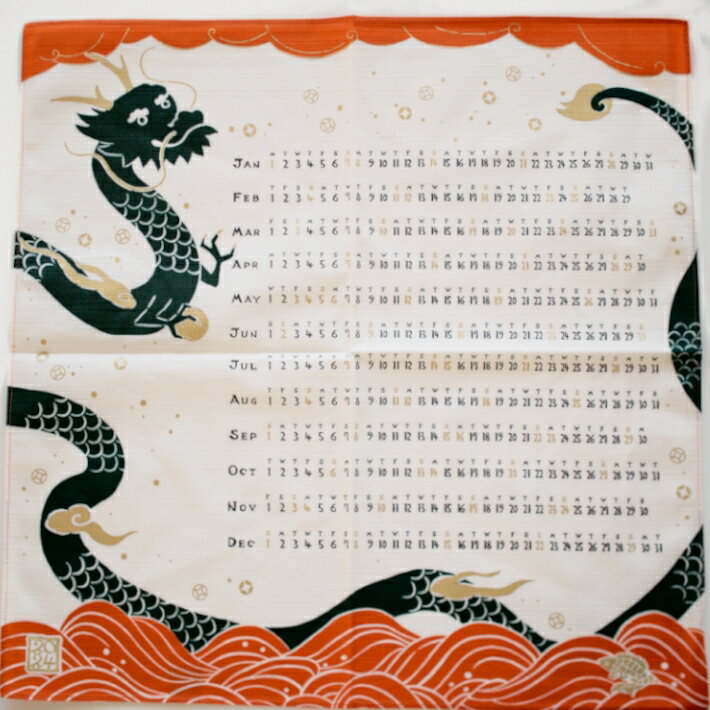 M T W T F S S M T W T F S S M T W T F S S M T W T F S S M T W
JAN 1 2 3 4 5 6 7 8 9 10 11 12 13 14 15 16 17 18 19 20 21 22 23 24 25 26 27 28 29 30 31
T F S S M T W T F S S M T W T F S S M T W T F S S M T W T
FEB 1 2 3 4 5 6 7 8 9 10 11 12 13 14 15 16 17 18 19 20 21 22 23 24 25 26 27 28 29
F S S M T W T F S S M T W T F S S M T W T F S S M T W T F S S
MAR 1 2 3 4 5 6 7 8 9 10 11 12 13 14 15 16 17 18 19 20 21 22 23 24 25 26 27 28 29 30 31
M T W T F S S M T W T F S S M T W T F S S M T W T F S S M T
APR 1 2 3 4 5 6 7 8 9 10 11 12 13 14 15 16 17 18 19 20 21 22 23 24 25 26 27 28 29 30
W T F S S M T W T F S S M T W T F S S M T W T F S S M T W T F
MAY 1 2 3 4 5 6 7 8 9 10 11 12 13 14 15 16 17 18 19 20 21 22 23 24 25 26 27 28 29 30 31
S S M T W T F S S M T W T F S S M T W T F S S M T W T F S S
JUN 1 2 3 4 5 6 7 8 9 10 11 12 13 14 15 16 17 18 19 20 21 22 23 24 25 26 27 28 29 30
M T W T F S S M T W T F S S M T W T F S S M T W T F S S M T W
JUL 1 2 3 4 5 6 7 8 9 10 11 12 13 14 15 16 17 18 19 20 21 22 23 24 25 26 27 28 29 30 31
T F S S M T W T F S S M T W T F S S M T W T F S S M T W T F S
AUG 1 2 3 4 5 6 7 8 9 10 11 12 13 14 15 16 17 18 19 20 21 22 23 24 25 26 27 28 29 30 31
S M T W T F S S M T W T F S S M T W T F S S M T W T F S S M
SEP 1 2 3 4 5 6 7 8 9 10 11 12 13 14 15 16 17 18 19 20 21 22 23 24 25 26 27 28 29 30
T W T F S S M T W T F S S M T W T F S S M T W T F S S M T W T
OCT 1 2 3 4 5 6 7 8 9 10 11 12 13 14 15 16 17 18 19 20 21 22 23 24 25 26 27 28 29 30 31
F S S M T W T F S S M T W T F S S M T W T F S S M T W T F S
NOV 1 2 3 4 5 6 7 8 9 10 11 12 13 14 15 16 17 18 19 20 21 22 23 24 25 26 27 28 29 30
S M T W T F S S M T W T F S S M T W T F S S M T W T F S S M T
DEC 1 2 3 4 5 6 7 8 9 10 11 12 13 14 15 16 17 18 19 20 21 22 23 24 25 26 27 28 29 30 31
20
24